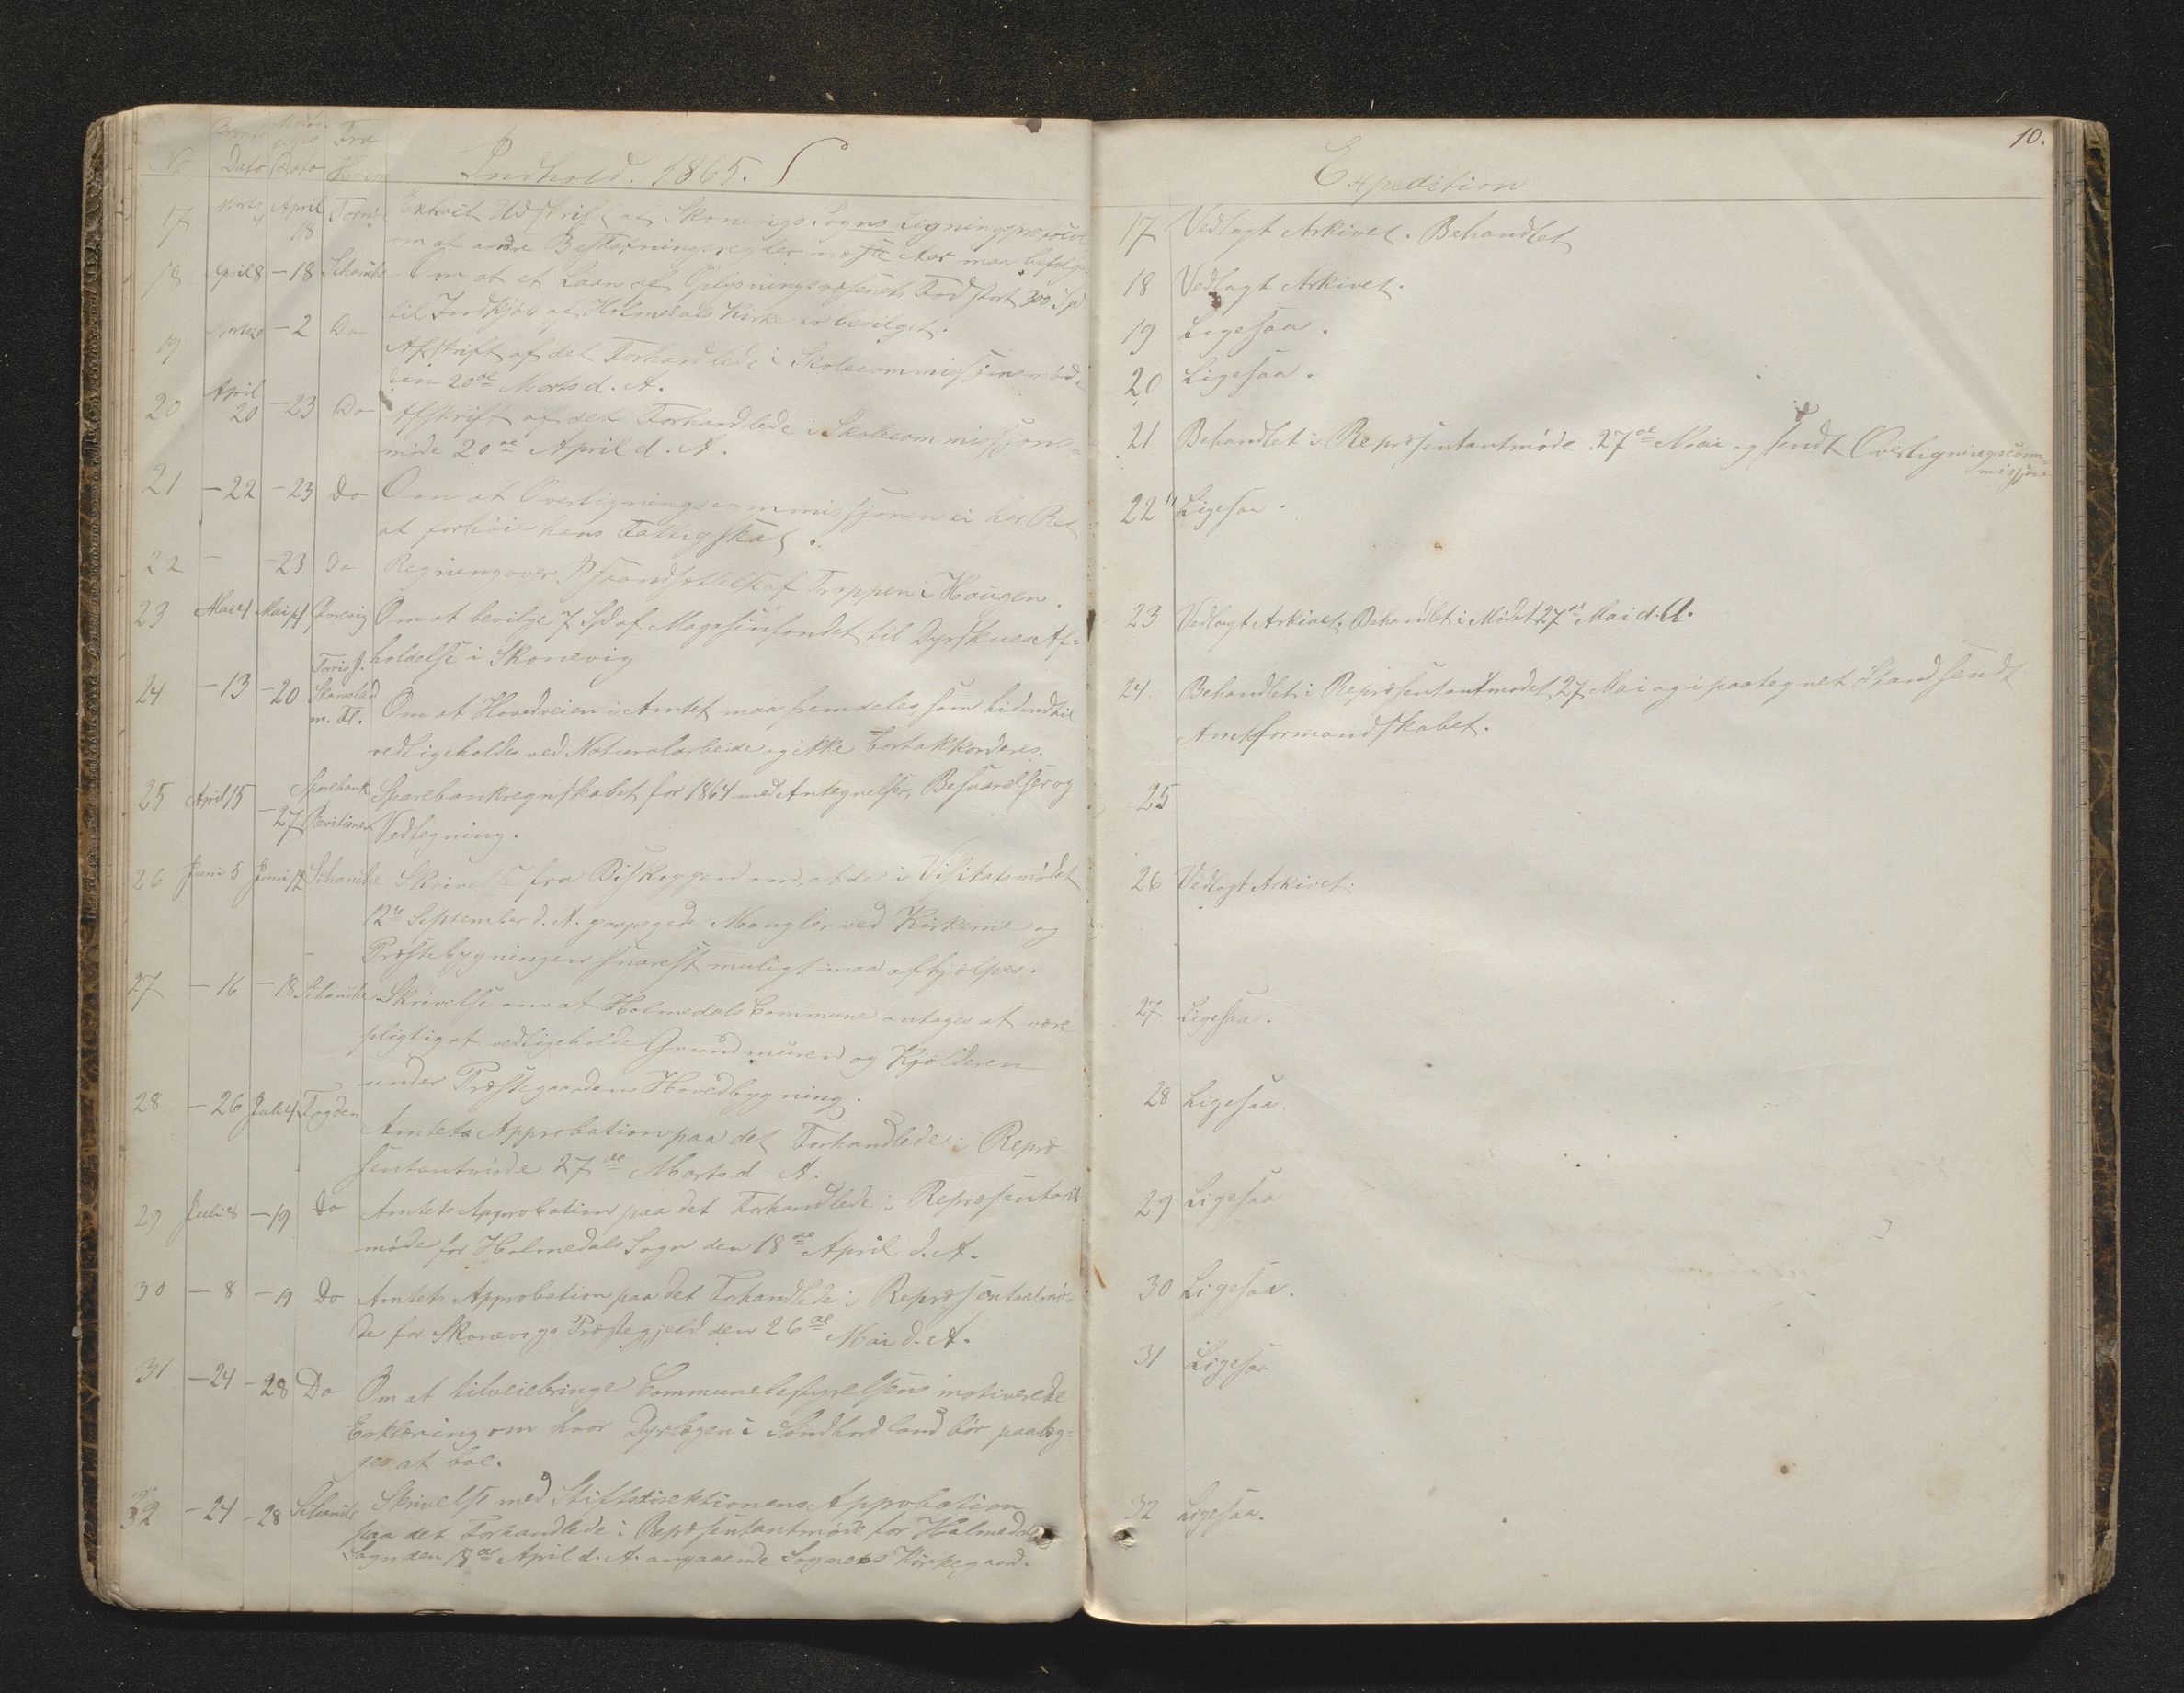 No Dato Dato Fra Hvem Indhold. 1865.
17 Marts 4 April 18 Extract Udskrift af Skonevigs Sogns Ligningsprotocol
om at andre Beskatningsregler næste Aar maa befølges.
18 April 8 - 18 Schanche Om at et Laan af Oplysningsvæsenets Fond stort 300 Spd
til Indkjøb af Holmedals Kirke er bevilget.
19 - 2 Do Afskrift af det Forhandlede i Skolecommissionsmøde
den 20de Marts d. A.
20 April 20 - 23 Do Afskrift af det Forhandlede i Skolecommissjons-
møde 20de April d. A.
21 - 22 - 23 Do Om at Overligningscommissjonen ei har Ret
at forhøie hans Fattigskat.
22 - - 23 Do Regning over Istandsættelse af Trappen i Haugen.
23 Mai 4 Mai Om at bevilge 7 Spd af Magasinfondet til Dyrskues Af-
holdelse i Skonevig
24 - 13 - 20 m. Fl. Om at Hovedveien i Amtet maa fremdeles som hidindtil
vedligeholdes ved Naturalarbeide og ikke bortakkorderes.
25 April 15 - 27 Sparebank Revisionen Sparebankregnskabet for 1864 med Antegnelser, Besvarelser og
Vedtegning.
26 Juni 5 Juni 12 Schanche Skrivelse fra Biskoppen om, at de i Visitatsmødet
12te September d. A. paapegede Mangler ved Kirkerne og
Præstebygningen snarest muligt maa afhjælpes.
27 - 16 - 18 Schanche Skrivelse om at Holmedals Commune antages at være
pligtig at vedligeholde Grundmuren og Kjælderen
under Præstegaardens Hovedbygning.
28 - 26 Juli 4 Fogden Amtets Approbation paa det Forhandlede i Repræ
sentantmøde 27de Marts d. A.
29 Juli 8 - 19 Do Amtets Approbation paa det Forhandlede i Repræsentant
møde for Holmedals Sogn den 18de April d. A.
30 - 8 - 19 Do Amtets Approbation paa det Forhandlede i Repræsentantmø-
de for Skonevigs Præstegjeld den 26de Mai d. A.
31 - 24 - 28 Do Om at tilveiebringe Communebestyrelsens motiverede
Erklæring om hvor Dyrlægen i Søndhordland bør paalæg-
ges at boe.
32 - 24 - 28 Schanche Skrivelse med Stiftsdirektionens Approbation
paa det Forhandlede i Repræsentantmøde for Holmedals
Sogn den 18de April d. A. angaaende Sognets Kirkegaard.
10.
Expedition
17 Vedlagt Arkivet. Behandlet
18 Vedlagt Arkivet.
19 Ligesaa.
20 Ligesaa.
21 Behandlet i Repræsentantmøde 27de Mai og sendt Overligningscom-
missjon
22 Ligesaa.
23 Vedlagt Arkivet. Behandlet i Mødet 27de Mai d. A.
24. Behandlet i Repræsentantmødet 27 Mai og i paategnet Stand sendt
Amtsformandskabet.
25
26 Vedlagt Arkivet.
27 Ligesaa.
28 Ligesaa.
29 Ligesaa
30 Ligesaa.
31 Ligesaa
32 Ligesaa.